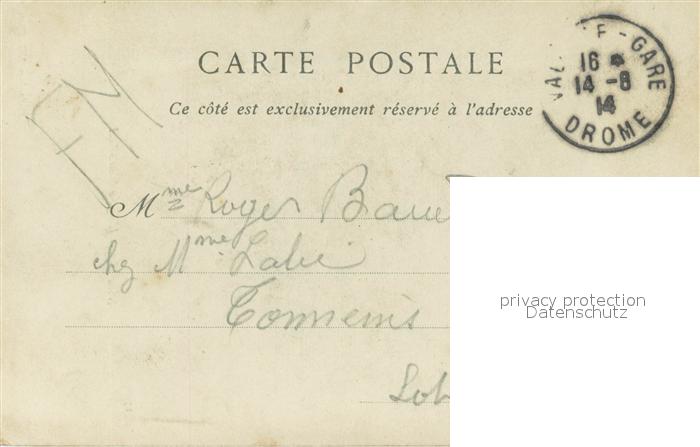 CARTE POSTALE
Ce côté est exclusivement réservé à l'adresse
GARE
16
14-8
14
DROME
FM
Mme Roger
chez Mme Labé
Tonneins
Lot
privacy protection
Datenschutz